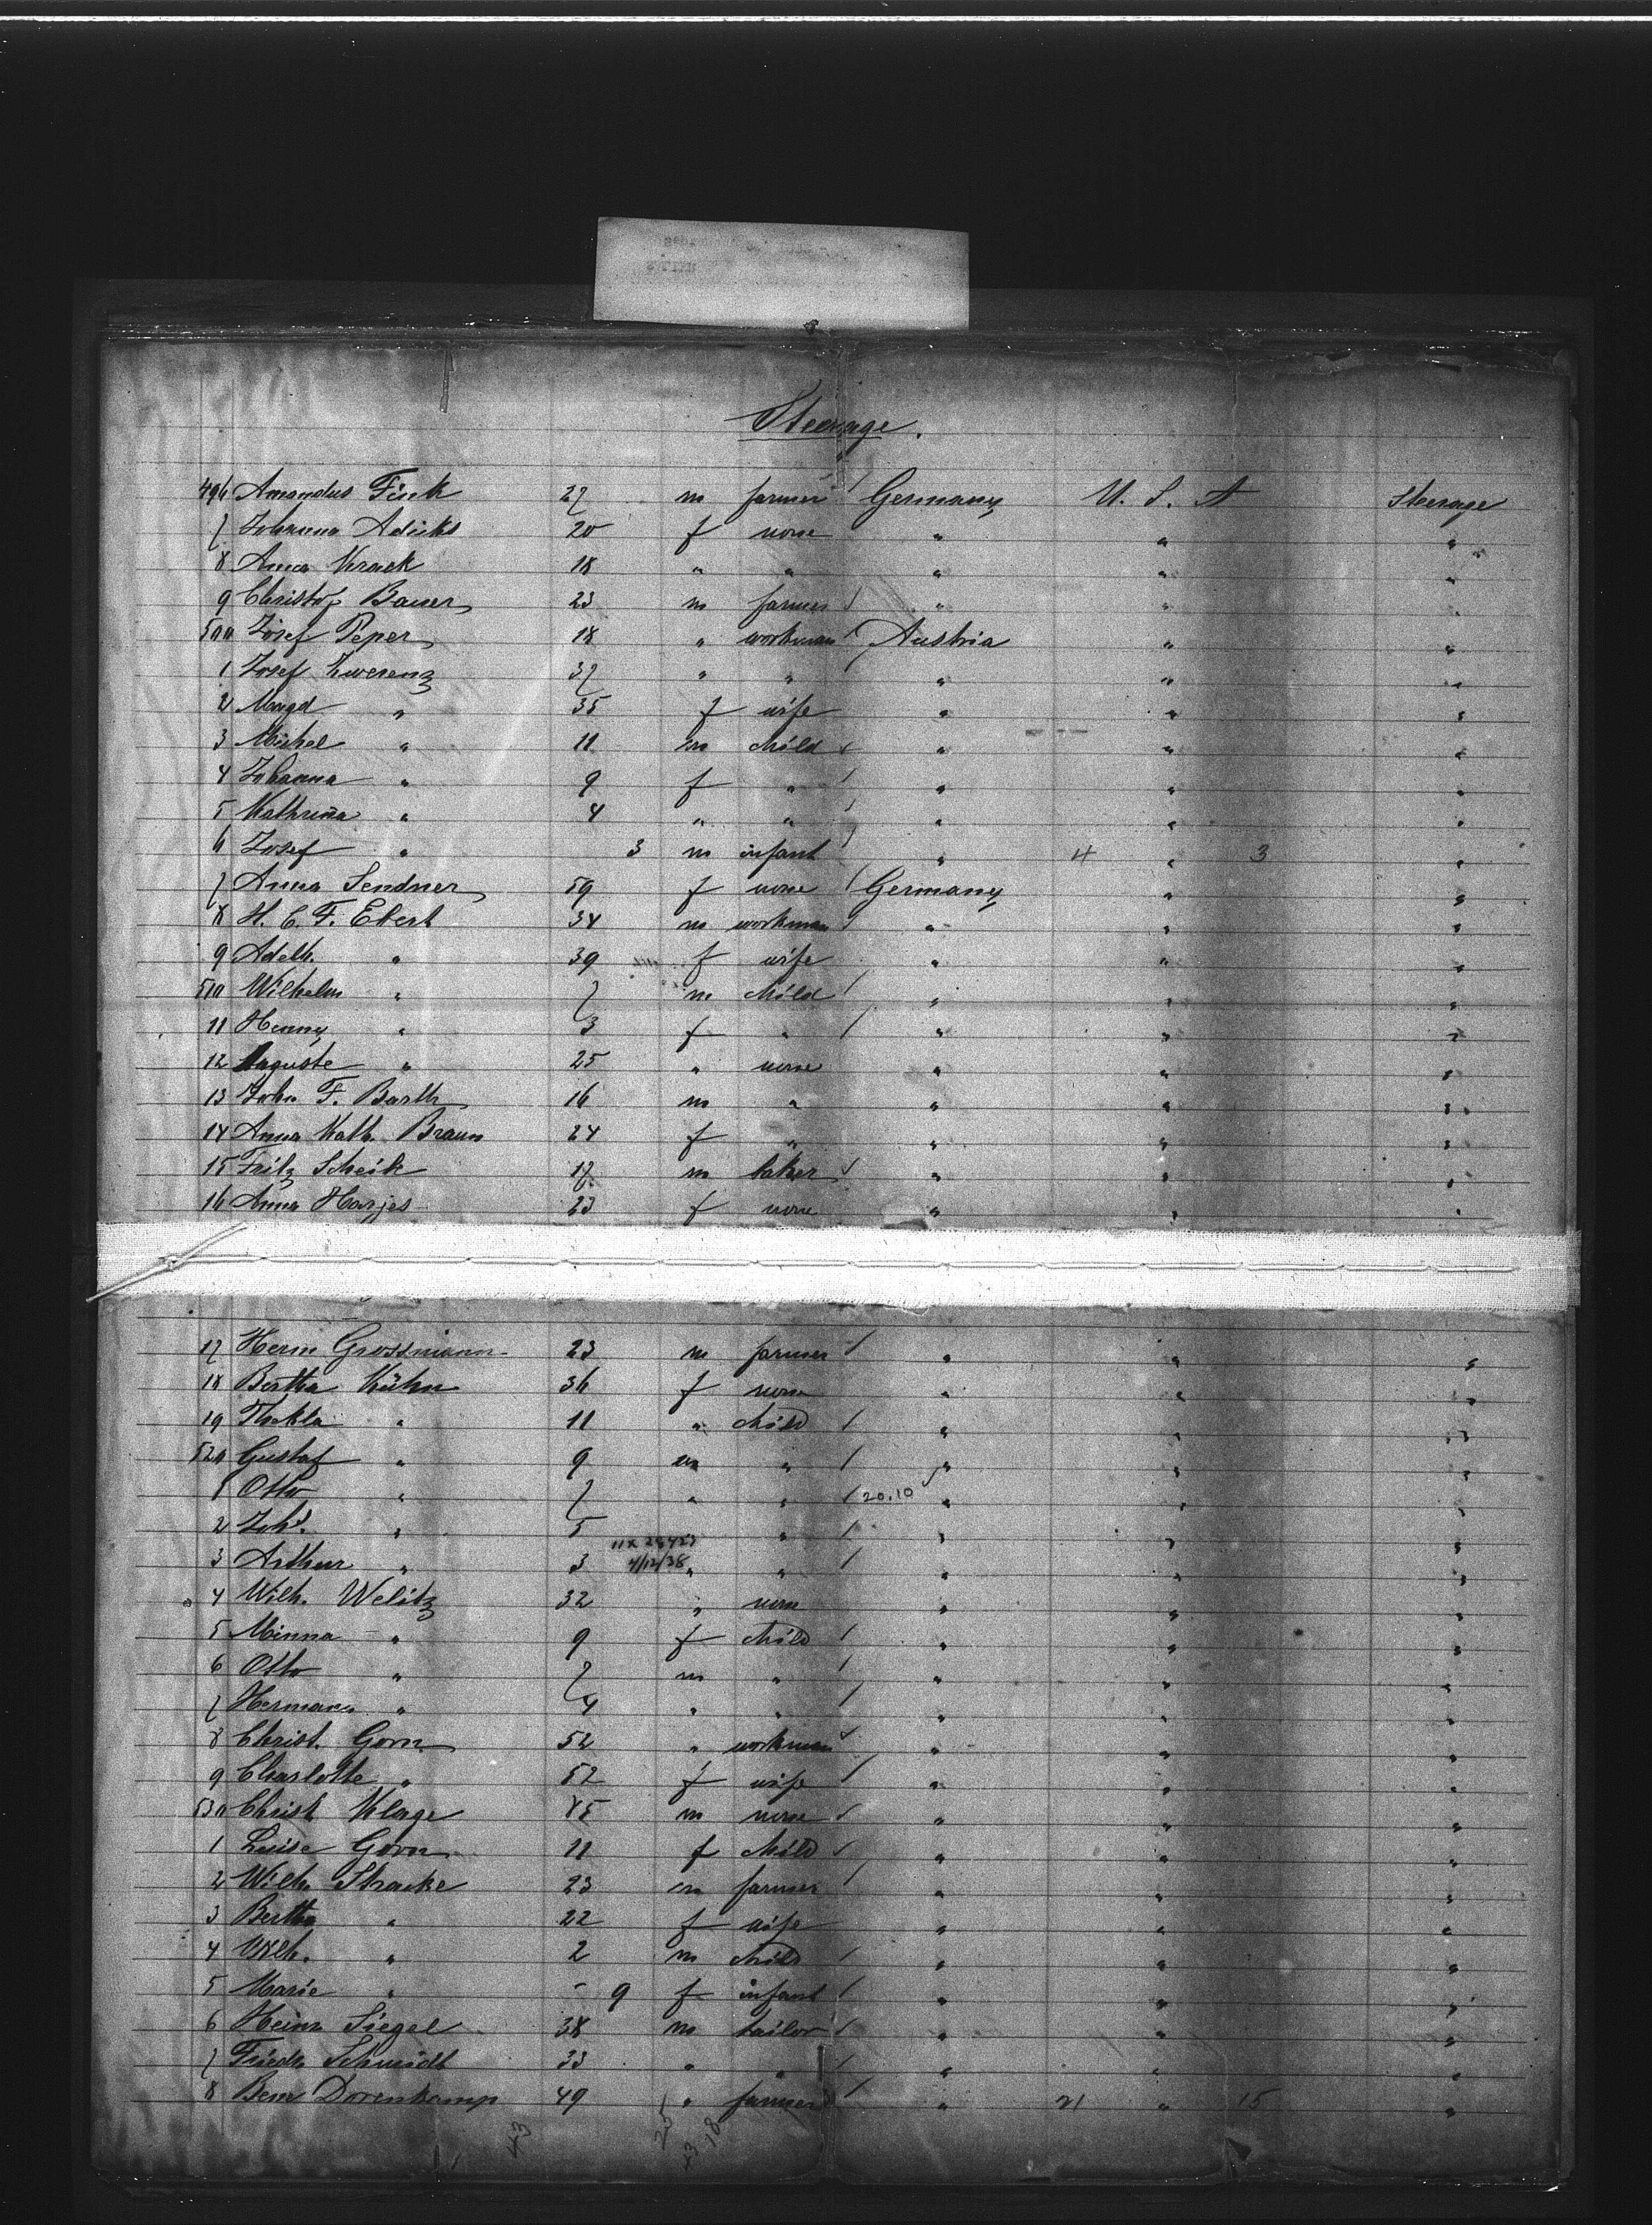 Steerage.
496 Amandus Fink 27 m farmer / Germany U. S. A Steerage
7 Johanna Adicks 20 f none " " "
8 Anna Krack 18 " " " " "
9 Christof Bauer 23 m farmer / " " "
500 Josef Peper 18 " workman / Austria " "
1 Josef Zwerenz 37 " " " " "
2 Magd " 35 f wife " " "
3 Michel " 11 m child / " " "
4 Johanna " 9 f " / " " "
5 Kathrina " 4 " " / " " "
6 Josef " 3 m infant / " 4 " 3 "
7 Anna Sendner 59 f none / Germany " "
8 H. C. F. Ebert 34 m workman / " " "
9 Adelh. " 39 f wife " " "
510 Wilhelm " 7 m child / " " "
11 Henny " 3 f " / " " "
12 Auguste " 25 " none " " "
13 John F. Barth 16 m " " " "
14 Anna Kath. Braun 24 f " " " "
15 Fritz Scheik 17 m baker / " " "
16 Anna Harjes 23 f none " " "
17 Herm Grossmann 23 m farmer / " " "
18 Bertha Kühn 36 f none " " "
19 Thekla " 11 " child / " " "
520 Gustaf " 9 m " / " " "
1 Otto " 7 " " / 20.10 " " "
2 Johs. " 5 " / " " "
11X 28423
3 Arthur " 3 4/12/38 " " / " " "
4 Wilh. Welitz 32 " none " " "
5 Minna " 9 f child / " " "
6 Otto " 7 m " / " " "
7 Hermann " 4 " " / " " "
8 Christ. Gorn 52 " workman / " " "
9 Charlotte " 52 f wife / " " "
530 Christ Klage 85 m none / " " "
1 Luise Gorn 11 f child / " " "
2 Wilh. Stracke 23 m farmer / " " "
3 Bertha " 22 f wife " " "
4 Wilh. " 2 m child / " " "
5 Marie " - 9 f infant / " " "
6 Heinr Siegel 38 m tailor / " " "
7 Friedr Schmidt 33 " " / " " "
8 Bern Dorenkamp 49 " farmer / " 21 " 15 "
43 25 18